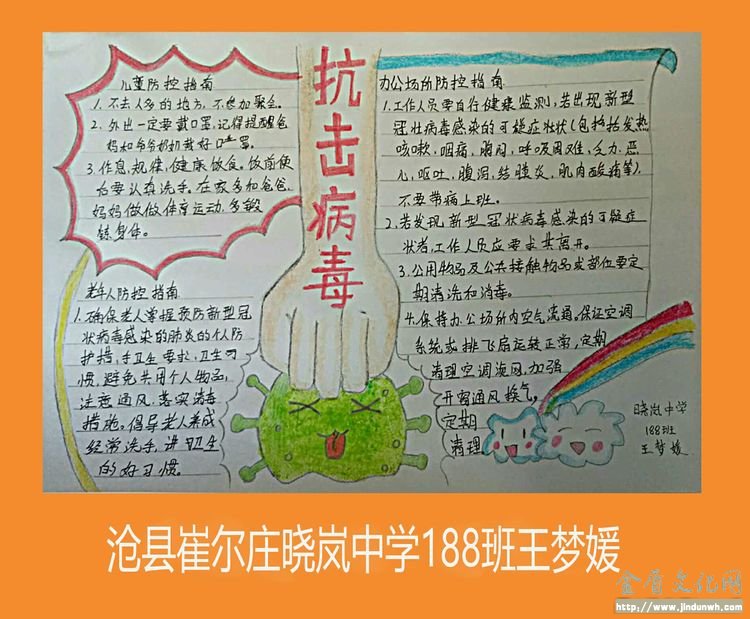 抗击病毒
儿童防控指南
1.不去人多的地方,不参加聚会。
2.外出一定要戴口罩,记得提醒爸
妈和爷爷奶奶戴好口罩。
3.作息规律,健康饮食,饭前便
后要认真洗手。在家多和爸爸
妈妈做做体育运动,多锻
炼身体。
老年人防控指南
1.确保老人掌握预防新型冠
状病毒感染的肺炎的个人防
护措,手卫生要求,卫生习
惯,避免共用个人物品,
注意通风,落实消毒
措施。倡导老人养成
经常洗手,讲卫生
的好习惯。
办公场所防控指南
1.工作人员要自行健康监测,若出现新型
冠状病毒感染的可疑症状(包括发热
咳嗽,咽痛,胸闷,呼吸困难,乏力,恶
心,呕吐,腹泻,结膜炎,肌肉酸痛等),
不要带病上班。
2.若发现新型冠状病毒感染的可疑症
状者,工作人员应要求其离开。
3.公用物品及公共接触物品或部位要定
期清洗和消毒。
4.保持办公场所内空气流通。保证空调
系统或排飞扇运转正常,定期
清理空调滤网,加强
开窗通风换气,
定期
清理
晓岚中学
188班
王梦媛
沧县崔尔庄晓岚中学188班王梦媛
金盾文化网
http://www.jindunwh.com